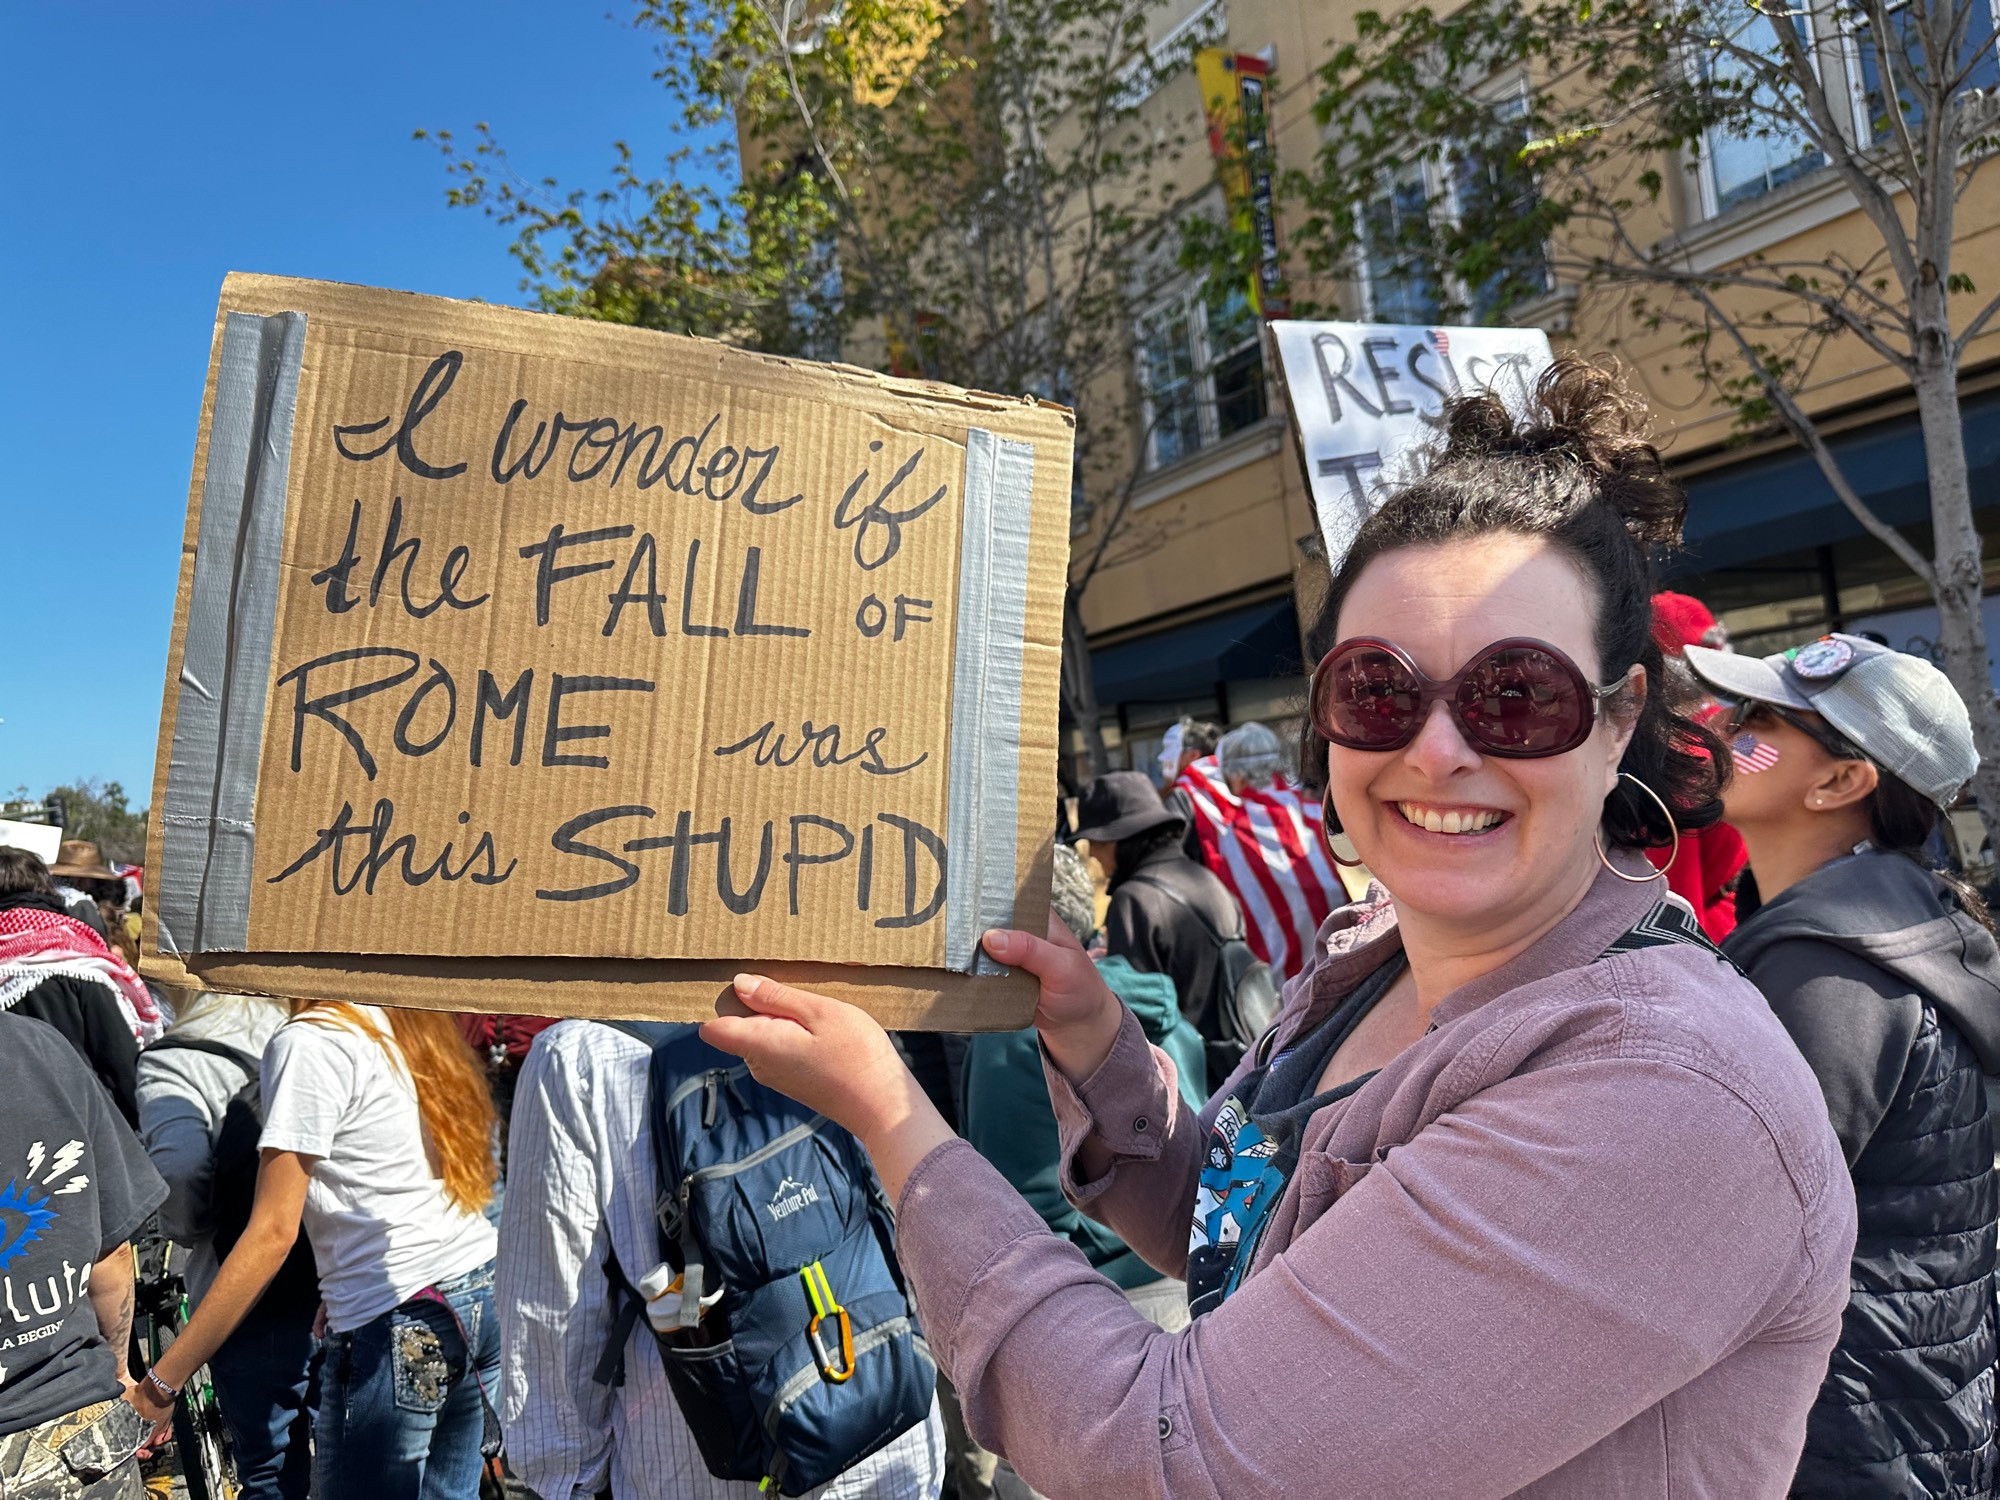 I wonder if
the FALL OF
ROME was
this STUPID
RESIST
Venture Pal